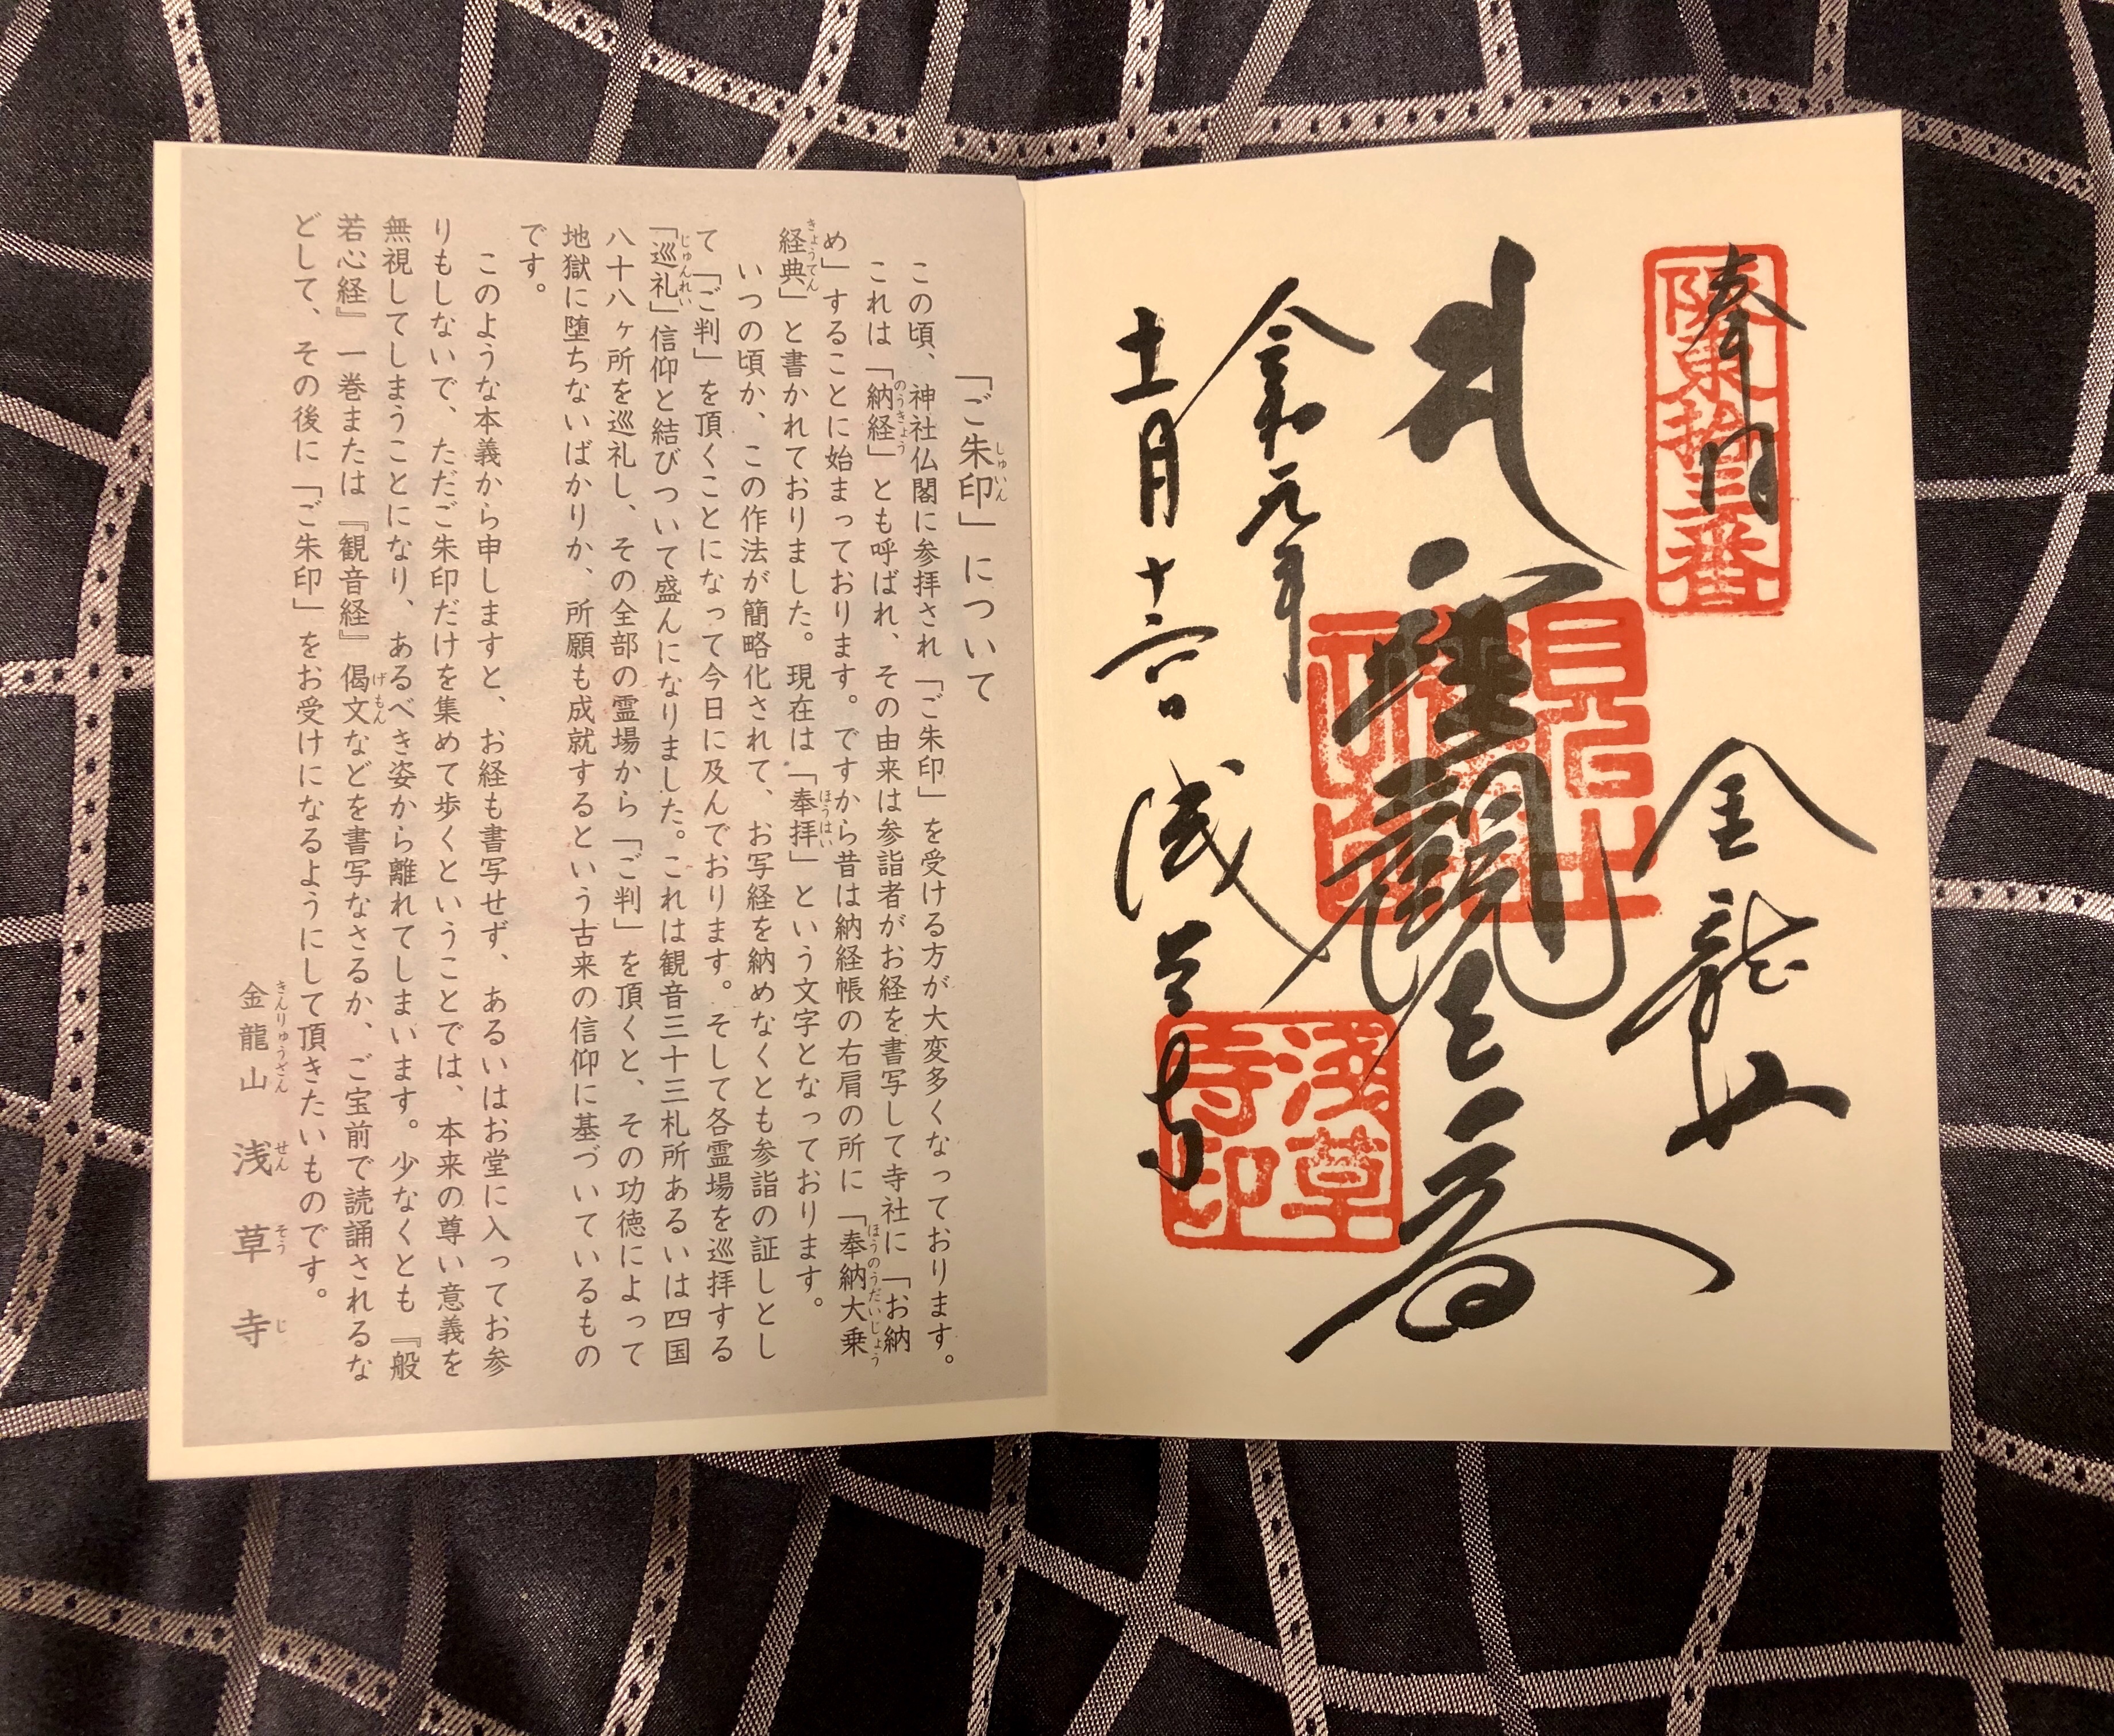 奉拝
阪東拾三番
金龍山
聖観世音
令和元年
十一月十六日
浅草寺
浅草寺印
「ご朱印」について
しゅいん
この頃、神社仏閣に参拝され「ご朱印」を受ける方が大変多くなっております。
これは「納経」とも呼ばれ、その由来は参詣者がお経を書写して寺社に「お納
のうきょう
め」することに始まっております。ですから昔は納経帳の右肩の所に「奉納大乗
ほうのうだいじょう
経典」と書かれておりました。現在は「奉拝」という文字となっております。
きょうてん
ほうはい
いつの頃か、この作法が簡略化されて、お写経を納めなくとも参詣の証しとし
て「ご判」を頂くことになって今日に及んでおります。そして各霊場を巡拝する
「巡礼」信仰と結びついて盛んになりました。これは観音三十三札所あるいは四国
じゅんれい
八十八ヶ所を巡礼し、その全部の霊場から「ご判」を頂くと、その功徳によって
地獄に堕ちないばかりか、所願も成就するという古来の信仰に基づいているもの
です。
このような本義から申しますと、お経も書写せず、あるいはお堂に入ってお参
りもしないで、ただご朱印だけを集めて歩くということでは、本来の尊い意義を
無視してしまうことになり、あるべき姿から離れてしまいます。少なくとも『般
若心経』一巻または『観音経』偈文などを書写なさるか、ご宝前で読誦されるな
げもん
どして、その後に「ご朱印」をお受けになるようにして頂きたいものです。
金龍山 浅草寺
きんりゅうざん せんそうじ